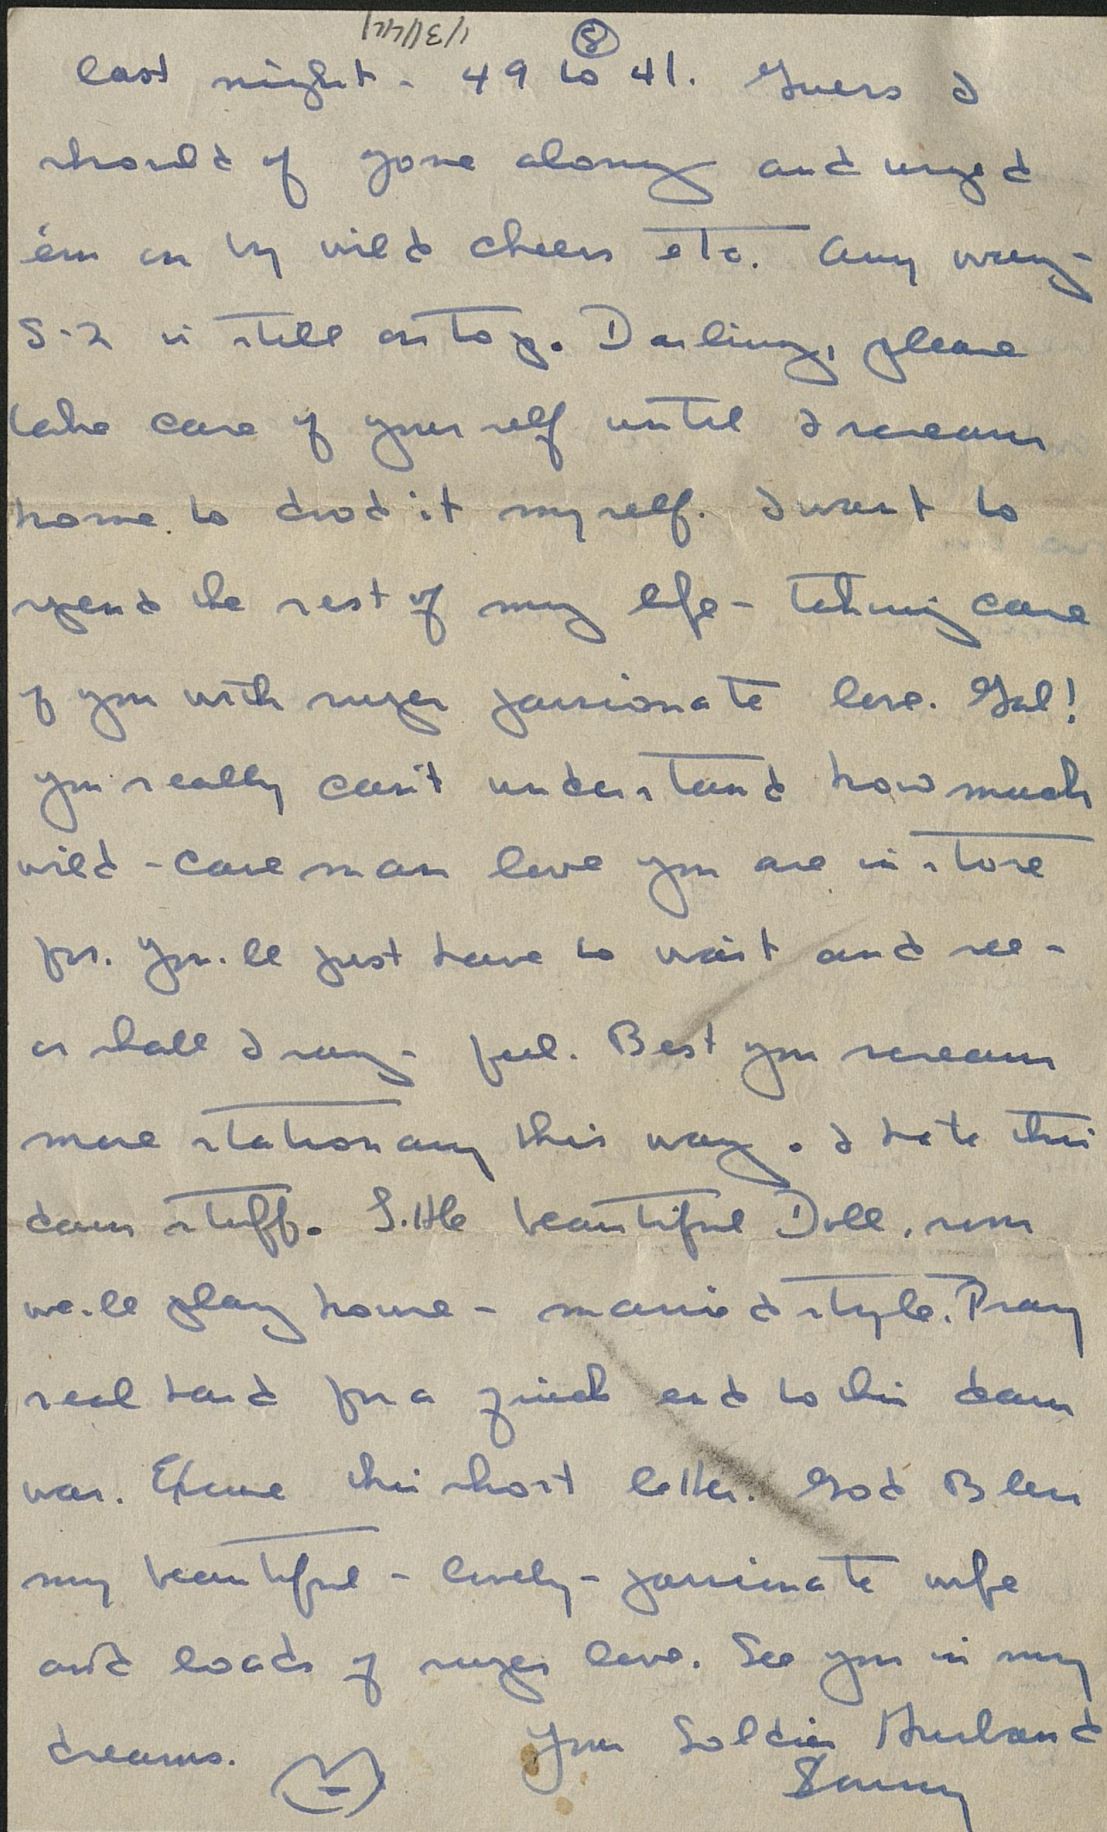 1/31/44
8
last night - 49 to 41. Guess I
should of gone along and urged
'em on by wild cheers etc. Any way -
S-2 is still on top. Darling, please
take care of your self until I scream
home to do it my self. I want to
spend the rest of my life - taking care
of you with super passionate love. Gal!
you really can't understand how much
wild - cave man love you are in store
for. You'll just have to wait and see -
or shall I say - feel. Best you scream
more stationary this way. I hate this
dam stuff. Little beautiful Doll, soon
we'll play house - married style. Pray
real hard for a quick end to this dam
war. Excuse this short letter. God Bless
my beautiful - lovely - passionate wife
and loads of super love. See you in my
dreams. Your Soldier Husband
Sonny